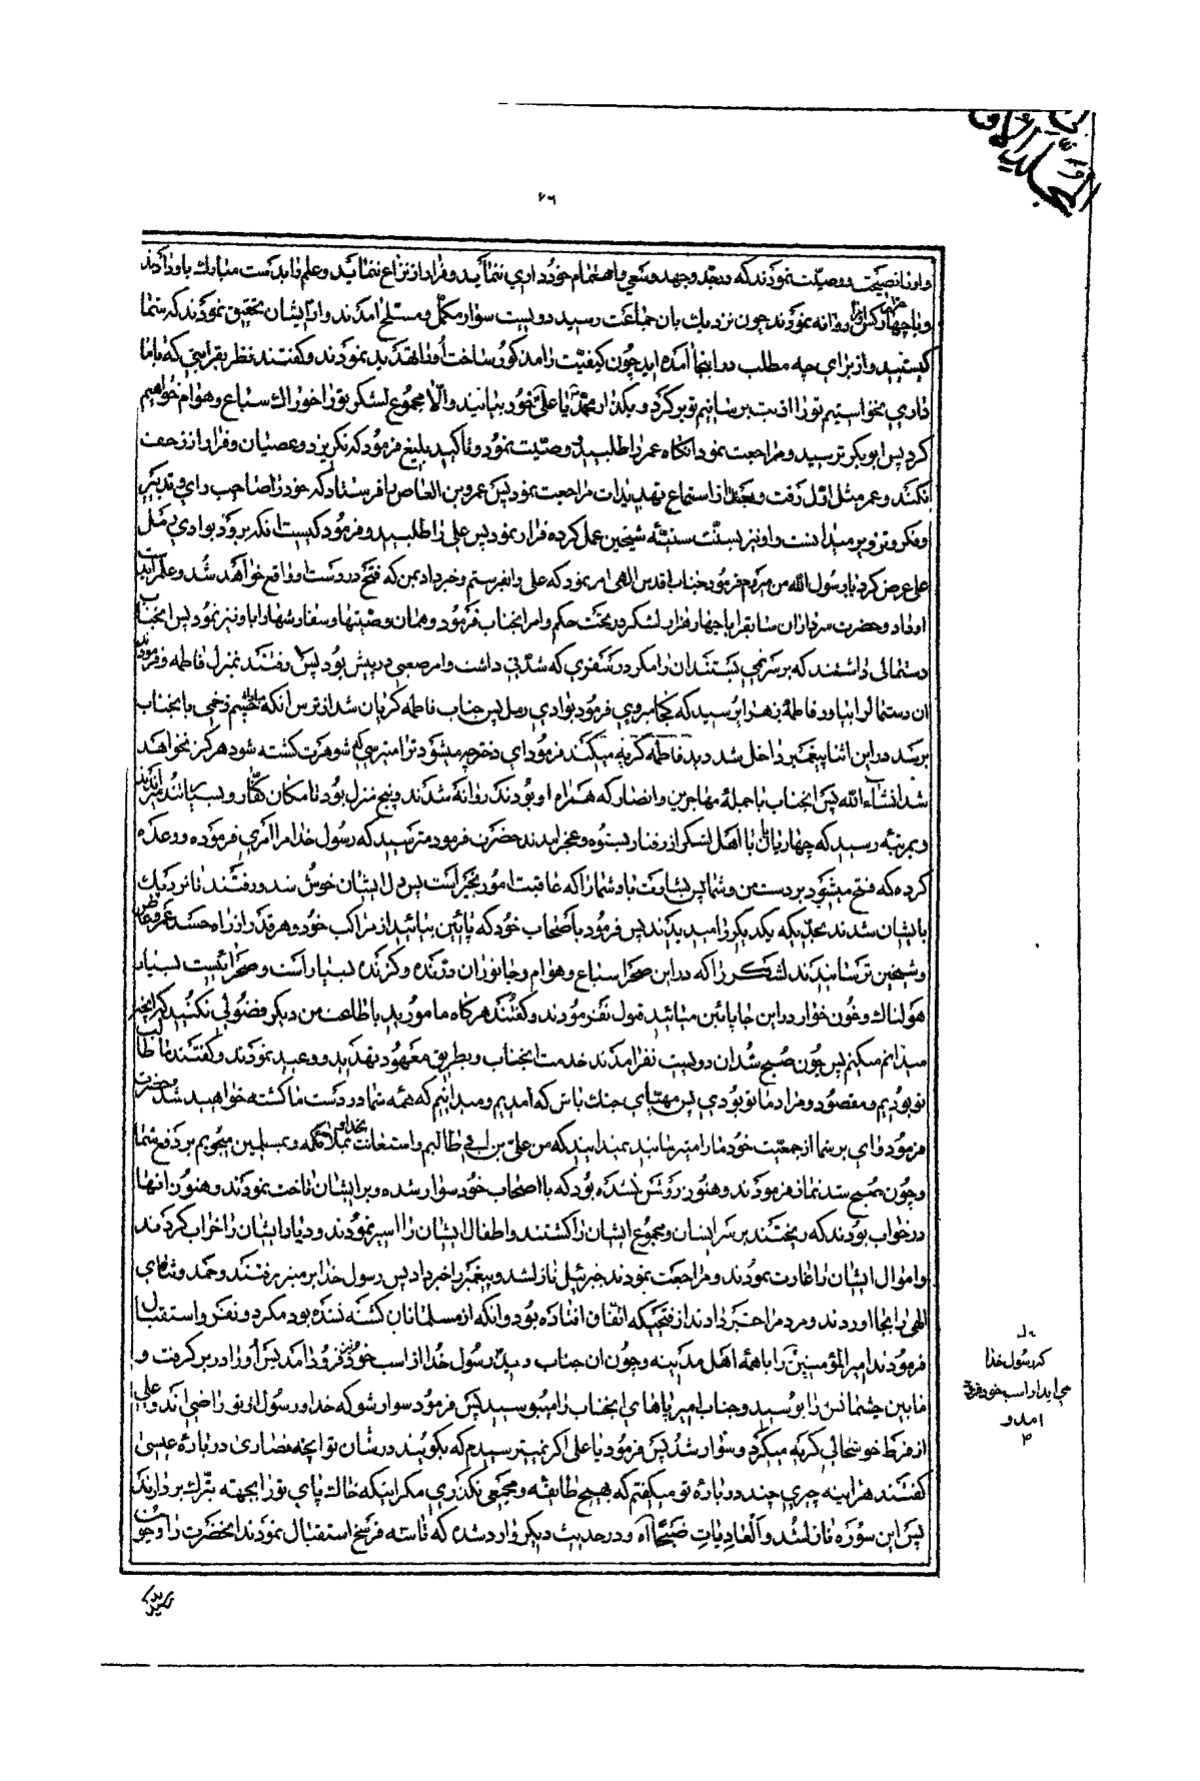 المجلد الاول
٧٦
و او را نصیحت و وصیّت نمودند که در جدّ و جهد و سعی و اهتمام خودداری ننمائید و فرار از نزاع ننمائید و علم را بدست مبارك باو دادند
و با چهار هزار کس او را روانه نمودند چون نزدیك بان جماعت رسید دویست سوار مکمّل و مسلّح آمدند و از ایشان تحقیق نمودند که شما
کیستید و از برای چه مطلب در اینجا آمده اید چون کیفیّت را مذکور ساخت او را تهدید نمودند و گفتند نظر بقرابتی که با ما
داری نخواستیم تو را اذیت برسانیم تو برگرد و بگذار محمّد یا علی خود بیایند والّا مجموع لشکر تو را خوراك سباع و هوام خواهیم
کرد پس ابوبکر ترسید و مراجعت نمود انگاه عمر را طلبید و وصیّت نمود و تاکید بلیغ فرمود که نگریزد و عصیان و فرار از زحف
نکند و عمر مثل اوّل رفت و بعد از استماع تهدیدات مراجعت نمود پس عمرو بن العاص را فرستاد که خود را صاحب رای و تدبیر
و فکر و تزویر میدانست و او نیز بسنّت سنیّه شیخین عمل کرده فرار نمود پس علی را طلبید و فرمود کیست انکه برود بوادی رمل
علی عرض کرد یا رسول الله من میروم فرمود جناب اقدس الهی امر نمود که علی را بفرستم و خبر داد بمن که فتح در دست او واقع خواهد شد و علم را بدست
او داد و حضرت سرداران سابق را با چهار هزار لشکر در تحت حکم و امر انجناب فرمود و همان وصیّتها و سفارشها را باو نیز نمود پس انجناب
دستمالی داشتند که بر سر نمی بستند ان را مگر در سفری که شدّتی داشت و امر صعبی در پیش بود پس رفتند بمنزل فاطمه و فرمودند
ان دستمال را بیاور فاطمهٔ زهرا پرسید که بکجا میروی فرمود بوادی رمل پس جناب فاطمه گریان شد از ترس انکه مبادا چشم زخمی بانجناب
برسد در این اثنا پیغمبر داخل شد دید فاطمه گریه میکند فرمود ای دختر چه میشود ترا میترسی که شوهرت کشته شود هرگز نخواهد
شد انشاءالله پس انجناب با جملهٔ مهاجرین و انصار که همراه او بودند روانه شدند و پنج منزل بود تا مکان کفّار و بسیار تند میراندند
و بمرتبه رسید که چهارپایان با اهل لشکر از رفتار بستوه و عجز امدند حضرت فرمود مترسید که رسول خدا مرا امری فرموده و وعده
کرده که فتح میشود بر دست من و شما پس بشارت باد شما را که عاقبت امور بخیر است پس دل ایشان خوش شد و رفتند تا نزدیك
بایشان شدند بحدّیکه یکدیگر را میدیدند پس فرمود باصحاب خود که پائین بیائید از مراکب خود و هر قدر از راه حسد عمرو عاص
و شیخین ترسانیدند لشکر را که در این صحرا سباع و هوام و جانوران درّنده و گزنده بسیار است و صحرائیست بسیار
هولناك و خون خوار در این جا پائین میائید قبول نفرمودند و گفتند هرگاه مامورید باطاعت من دیگر فضولی نکنید که انچه خیر
میدانم میکنم پس چون صبح شد ان دویست نفر امدند خدمت انجناب و بطریق معهود تهدید و وعید نمودند و گفتند ما طالب
تو بودیم و مقصود و مراد ما تو بودی پس مهیّای جنك باش که امدیم و میدانیم که همهٔ شما در دست ما کشته خواهید شد حضرت
فرمود وای بر شما از جمعیّت خود ما را میترسانید نمیدانید که من علی بن ابی طالبم و استعانت بخدا و بملائکه و بمسلمین میجویم بر دفع شما
و چون صبح شد نماز فرمودند و هنوز روشن نشده بود که با اصحاب خود سوار شده و بر ایشان تاخت نمودند و هنوز انها
در خواب بودند که ریختند بر سر ایشان و مجموع ایشان را کشتند و اطفال ایشان را اسیر نمودند و دیار ایشان را خراب کردند
و اموال ایشان را غارت نمودند و مراجعت نمودند جبرئیل نازل شد و پیغمبر را خبر داد پس رسول خدا بر منبر رفتند و حمد و ثنای
الهی را بجا اوردند و مردم را خبر دادند از فتحیکه اتّفاق افتاده بود و انکه از مسلمانان کشته نشده بود مگر دو نفر و استقبال
فرمودند امیرالمؤمنین را با همهٔ اهل مدینه و چون ان جناب دید رسول خدا را از اسب خود فرود امد پس او را در بر گرفت و
ما بین چشمانش را بوسید و جناب امیر پاهای انجناب را میبوسید پس فرمود سوار شو که خدا و رسول از تو راضی اند و علی
از فرط خوشحالی گریه میکرد و سوار شد پس فرمود یا علی اگر نمیترسیدم که بگویند در شان تو انچه نصاری در بارهٔ عیسی
گفتند هراینه چیزی چند در بارهٔ تو میگفتم که بهیچ طایفه و مجمعی نگذری مگر اینکه خاك پای تو را بجهة تبرّك بردارند
پس این سوره نازل شد وَالْعادِیاتِ ضَبْحًا آه و در حدیث دیگر وارد شده که تا سه فرسخ استقبال نمودند انحضرت را و چون
که رسول خدا
می اید از اسب خود فرود
امد و
رسیدند